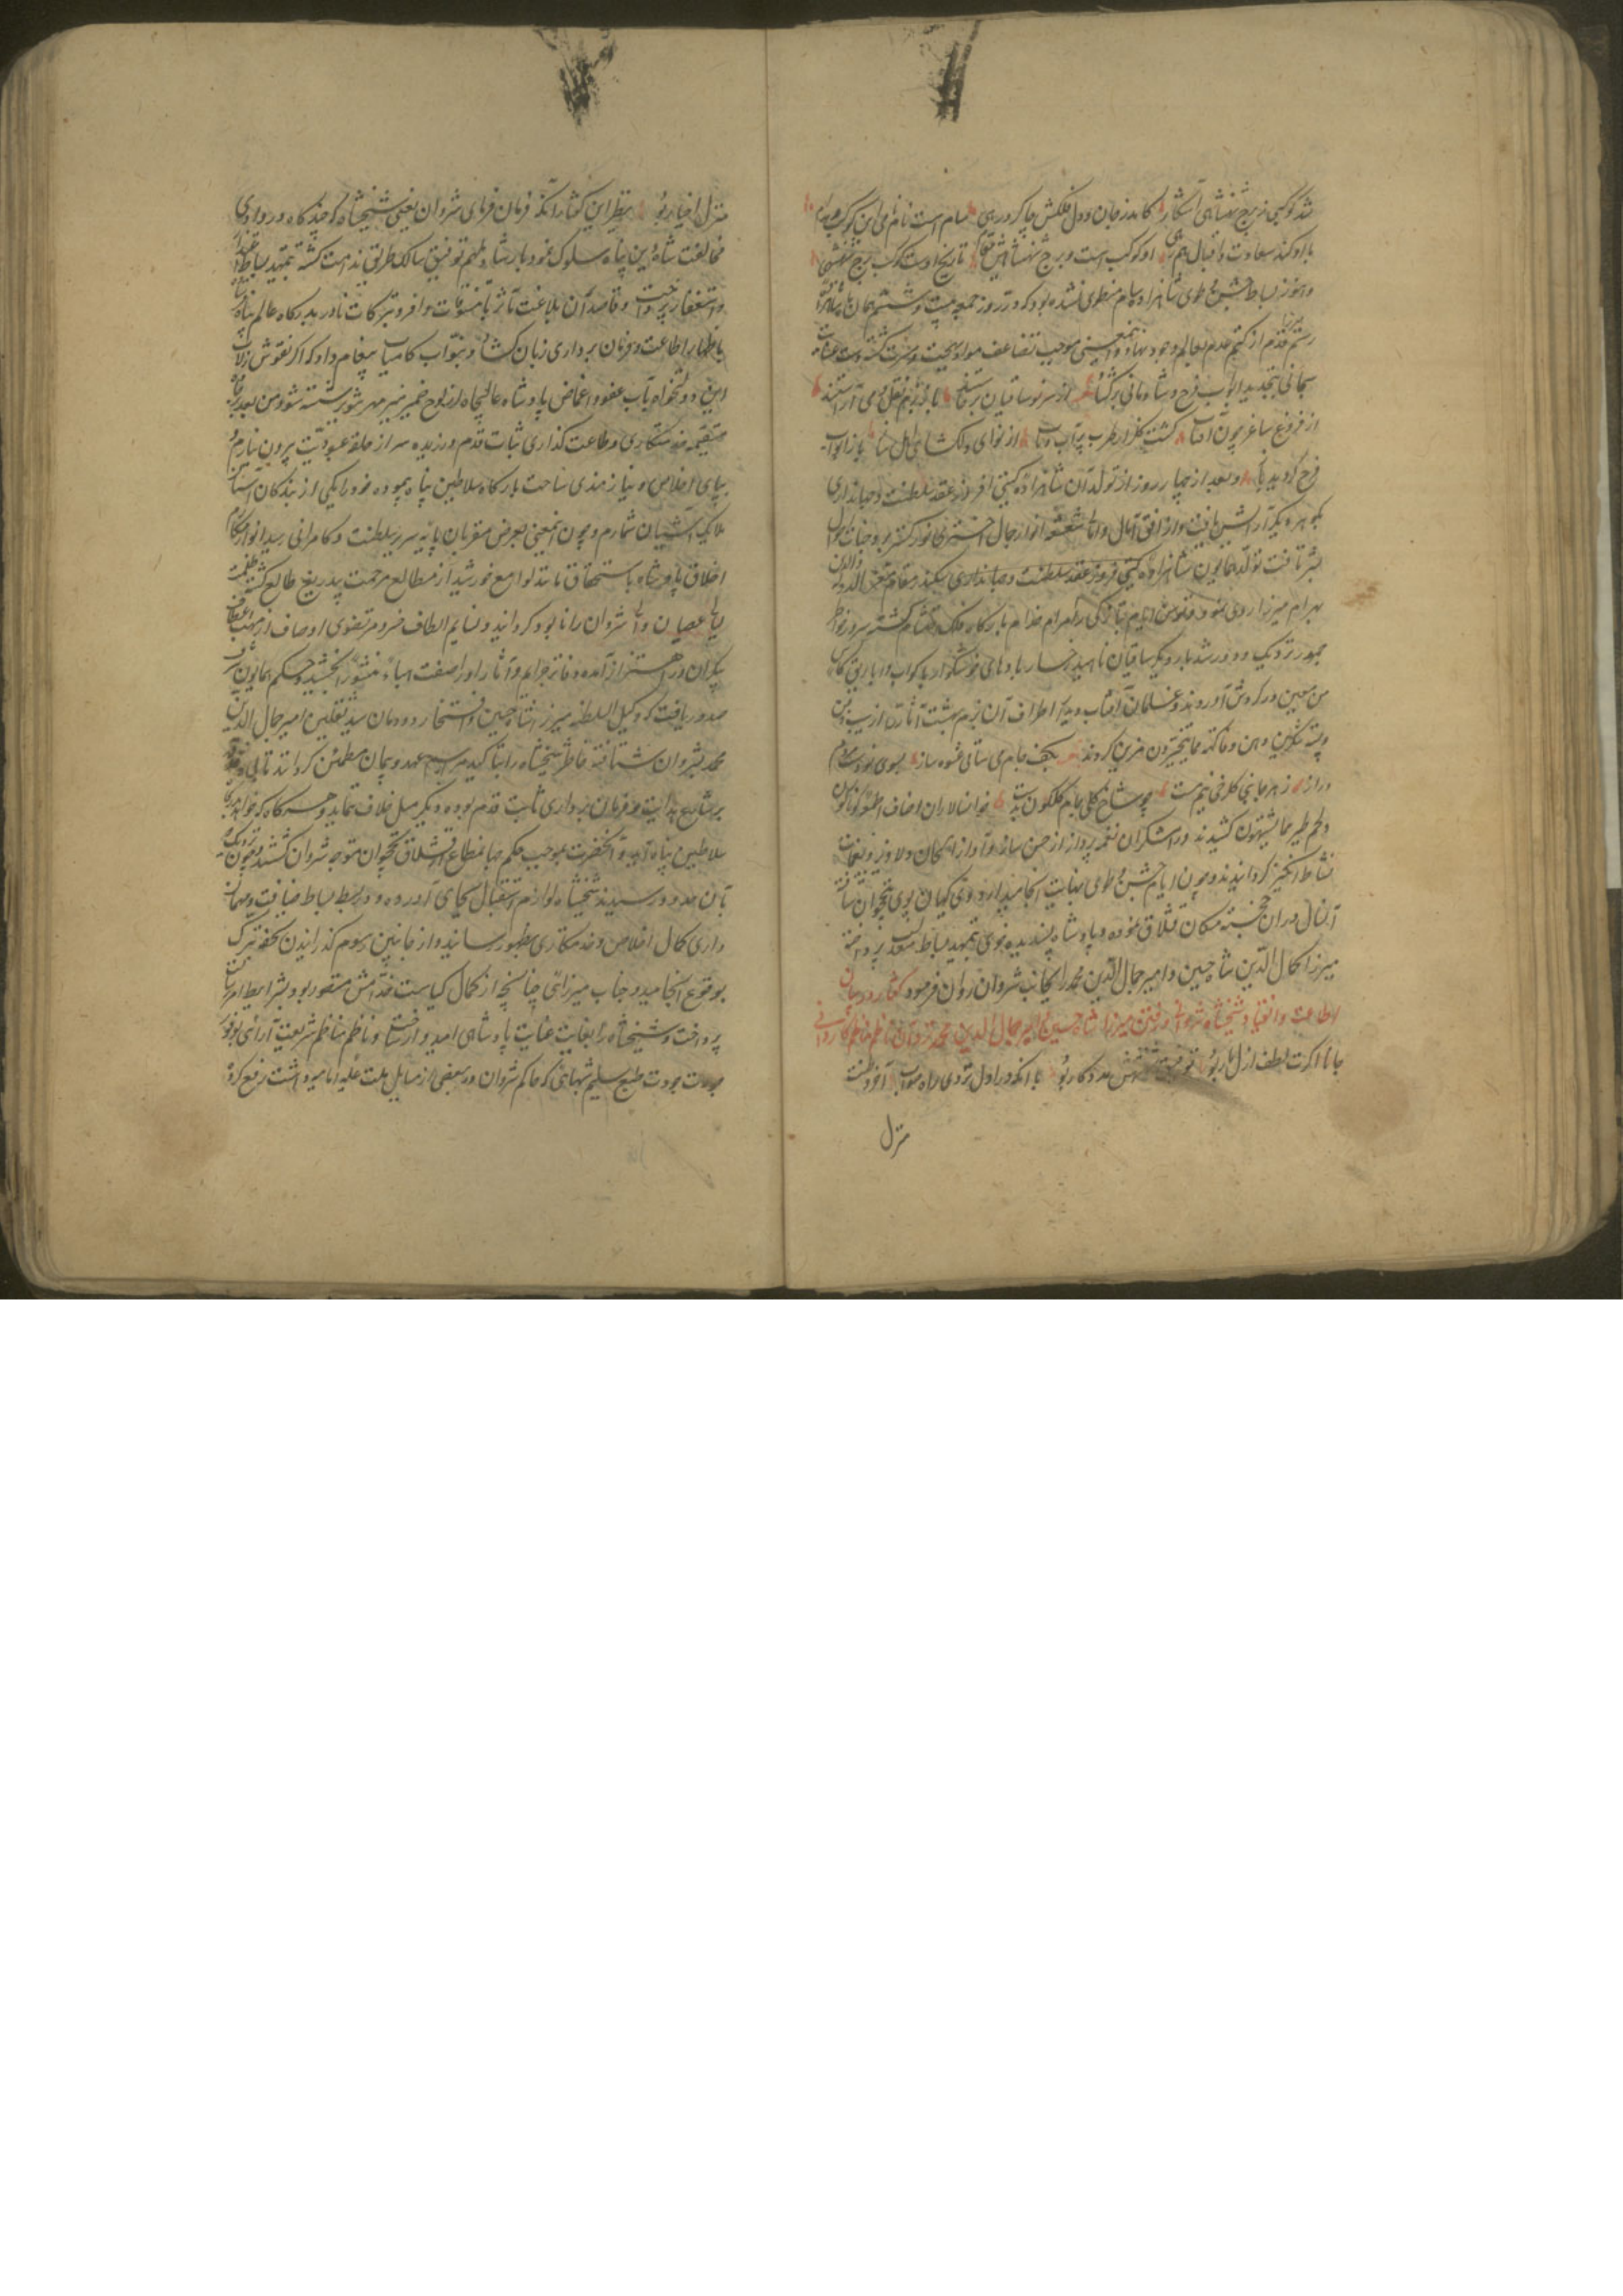 شد کوکبی ز برج شهنشاهی آشکار کامد ز جان و دل فلکش چاکر و رهی سام است نام نامی این کوکب
با او کند سعادت و اقبال او کوکب است و برج شهنشاهیش مقام تاریخ اوست کوکب برج شهنشهی
و هنوز بساط جشن طوی شاهزاده سام منطوی نشده بود که در روز جمعه بیست و ششم همان ماه
رستم از کتم عدم بعالم وجود نهاد و اینمعنی موجب تضاعف مواد بهجت و مسرت گشته
سبحانی بتجدید ابواب فرح و شادمانی برگشاد از سر نو ساقیان باز بزم آراستند
از فروغ ساغر چون آفتاب گشت گلزار طرب پر آب و تاب از نوای دلگشای باز ابواب
فرح گردید باز و بعد از چهار روز از تولد آن شاهزاده گیتی افروز عقد سلطنت و جهانداری
بگوهر دیگر آرایش یافت و از افق آمال و امانی شعشعه انوار جمال اختری نور گستر بر وجنات احوال
بشر تافت تولد همایون شاهزاده گیتی فروز عقد سلطنت و جهانداری سکندر مقام معز الدوله والدین
بهرام میرزا روی نمود و توسن ایام بتازگی رام خدام بارگاه فلک احتشام گشته سرور خواطر
جمهور ترک و دور شد بار دیگر ساقیان ناهید رخسار بادهای خوشگوار باکواب و اباریق و کأس
من معین در گردش آوردند و غلمان آفتاب دیدار اطراف آن بزم بهشت آثار را از سیب ذقن
و پسته شکرین دهن و فاکهة مما یتخیرون مزین کردند بکف جام می ساقی عشوه ساز بسوی
دراز ز هر جانبی گلرخی نیم مست چو شاخ گلی جام گلگون بدست خوانسالاران اصناف اطعمه گوناگون
و لحم طیر مما یشتهون کشیدند و رامشگران نغمه پرداز از حسن ساز و آواز الحان دلاویز و نغمات
نشاط انگیز گردانیدند و چون ایام جشن و طوی بنهایت انجامید اردوی کیهان پوی بنخجوان شتافته
آنسال در آن خجسته مکان قشلاق نموده و پادشاه پسندیده خوی بتمهید بساط معدلت پرداخته
میرزا کمال الدین شاه حسین و امیر جمال الدین محمد را بجانب شروان روان فرمود گفتار در بیان
اطاعت و انقیاد شیخشاه شروانی و رفتن میرزا شاه حسین و امیر جمال الدین محمد نزد آن ناظم مناظم کامرانی
جانا اگرت لطف ازل یار بود توفیق مددکار بود با آنکه در اول نروی راه صواب آخر وطنت
منزل
منزل اخیار بود نظیر این گفتار آنکه فرمان فرمای شروان یعنی شیخشاه که چند گاه در وادی
مخالفت شاه دین پناه سلوک نمود بارشاد ملهم توفیق سالک طریق ندامت گشته بتمهید بساط اعتذار
و استغفار پرداخت و قاصدان بلاغت آثر با تنسوقات وافر و تبرکات نادر بدرگاه عالم پناه
باظهار اطاعت و فرمان برداری زبان گشاده بنواب کامیاب پیغام داد که اگر نقوش زلات
این دولتخواه بآب عفو و اغماض پادشاه عالیجاه از لوح ضمیر منیر مهر تنویر شسته شود من بعد بر جاده
مستقیمه خدمتکاری و طاعت گذاری ثبات قدم ورزیده سر از حلقه عبودیت بیرون نیارم و
بپای اخلاص و نیازمندی ساحت بارگاه سلاطین پناه پیموده خود را یکی از بندگان آستان
ملایک آشیان شمارم و چون اینمعنی بعرض مقربان پایه سریر سلطنت و کامرانی رسید انوار مکارم
اخلاق پادشاه باستحقاق مانند لوامع خورشید از مطالع مرحمت بیدریغ طالع گشته ظلمت
لیالی عصیان والی شروان را نابود گردانید و نسایم الطاف خسرو مرتضوی اوصاف از مهب اعطاف
بیکران در اهتزاز آمده دفاتر جرایم و آثار او را صفت هباء منثورا بخشید و حکم همایون شرف
صدور یافت که وکیل السلطنه میرزا شاه حسین و افتخار دودمان سید ثقلین امیر جمال الدین
محمد بشروان شتافته خاطر شیخشاه را بتأکید مراسم عهد و پیمان مطمئن گردانند
بر شارع هدایت و فرمان برداری ثابت قدم بوده دیگر میل خلاف ننماید و هرگاه که خواهد بدرگاه
سلاطین پناه آید و آنحضرت بموجب حکم جهانمطاع از قشلاق نخجوان متوجه شروان گشتند و چون نزدیک
بآن حدود رسیدند شیخشاه لوازم استقبال بجای آورده و در بسط بساط ضیافت و مهمان
داری کمال اخلاص و خدمتکاری بظهور رسانید و از جانبین رسوم گذرانیدن تحف و تبرک
بوقوع انجامید و جناب میرزائی چنانچه از کمال کیاست و فراستش متصور بود بشرایط امر رسالت
پرداخت و شیخشاه را بغایت عنایت پادشاهی امیدوار ساخت و ناظم مناظم شریعت آرائی بوفور
جودت طبع سلیم شبهاتی که حاکم شروان در بعضی از مسایل ملت علیه امامیه داشت رفع کرد